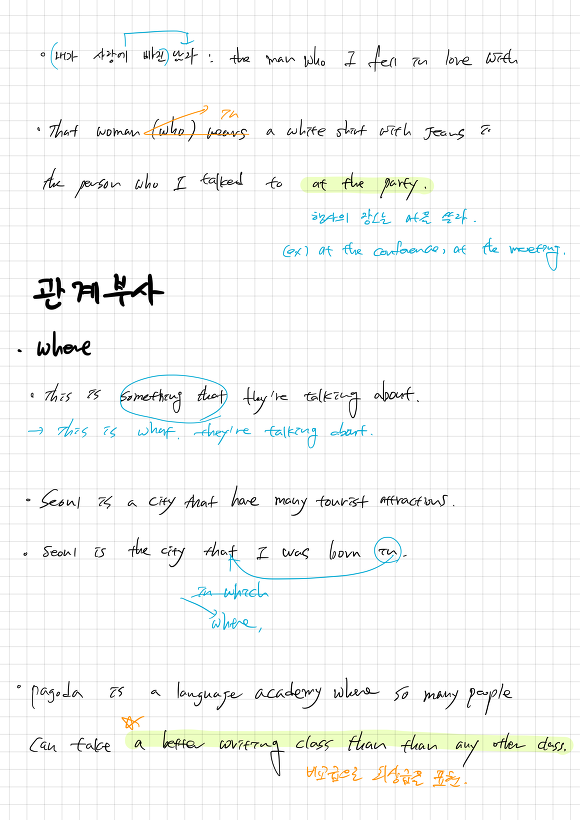 • (내가 사랑에 빠진) 남자 : the man who I fell in love with
in
• That woman (who) wears a white shirt with jeans is
the person who I talked to at the party.
행사의 장소는 at을 쓴다.
(ex) at the conference, at the meeting.
관계부사
• where
• This is something that they're talking about.
→ This is what they're talking about.
• Seoul is a city that have many tourist attractions.
• Seoul is the city that I was born in.
in which
where,
• pagoda is a language academy where so many people
☆
can take a better writing class than than any other class.
비교급으로 최상급을 표현.